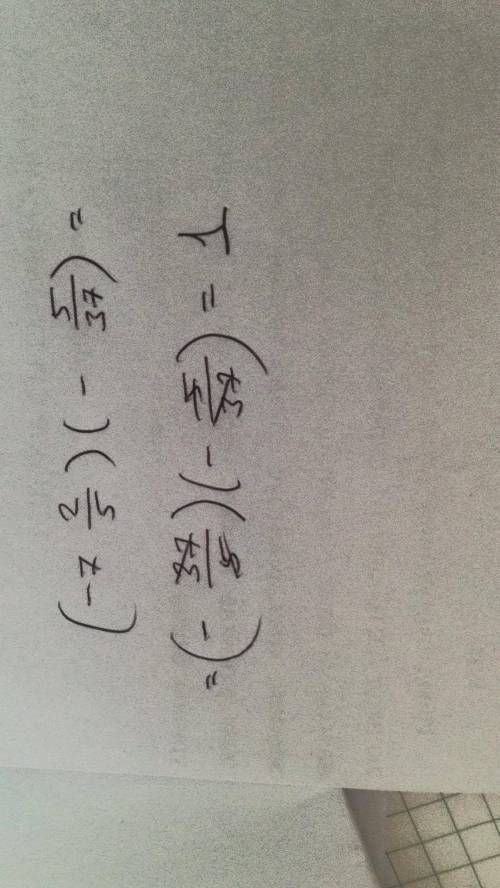 (-7 2/5)(- 5/37) =
= (- 37/5)(- 5/37) = 1